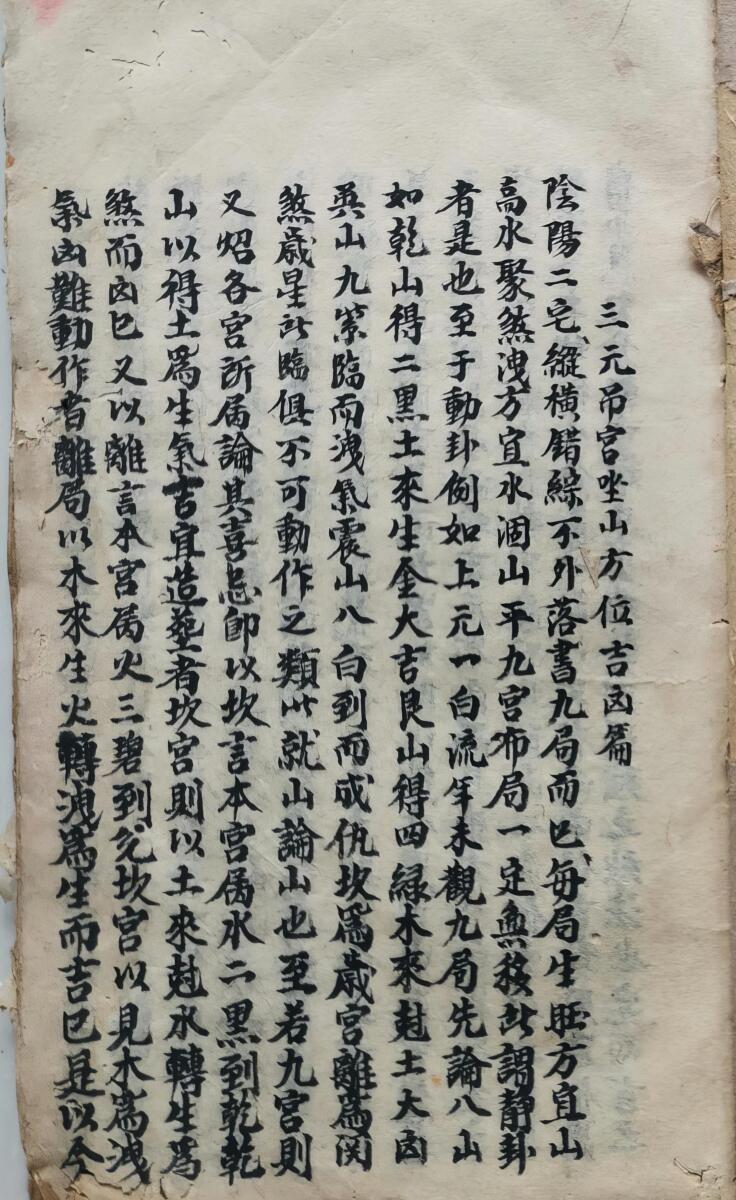 三元吊宮坐山方位吉凶篇
陰陽二宅縱橫錯綜不外落書九局而已每局生旺方宜山
高水聚煞洩方宜水涸山平九宮布局一定無移此謂静卦
者是也至于動卦例如上元一白流年未觀九局先論八山
如乾山得二黑土來生金大吉艮山得四緑木來尅土大凶
巽山九紫臨而洩氣震山八白到而成仇坎爲歲宮離爲関
煞歲星所臨俱不可動作之類此就山論山也至若九宮則
又炤各宮所属論其喜忌即以坎言本宮属水二黑到乾乾
山以得土爲生氣吉宜造塟者坎宮則以土來尅水轉生爲
煞而凶已又以離言本宮属火三碧到兊坎宮以見木爲洩
氣凶難動作者離局以木來生火轉洩爲生而吉已是以今